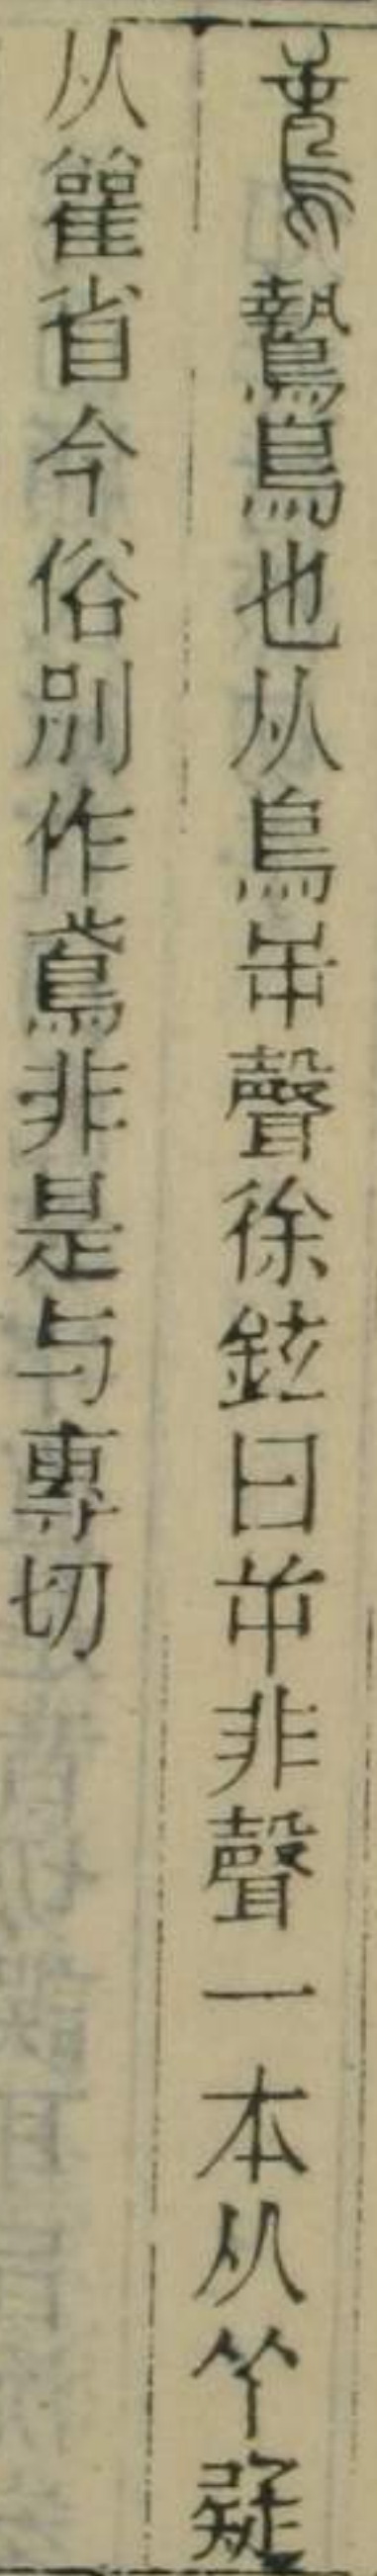 鷙鳥也从鳥屰聲徐鉉曰屰非聲一本从𦫳疑
从雚省今俗別作鳶非是与專切